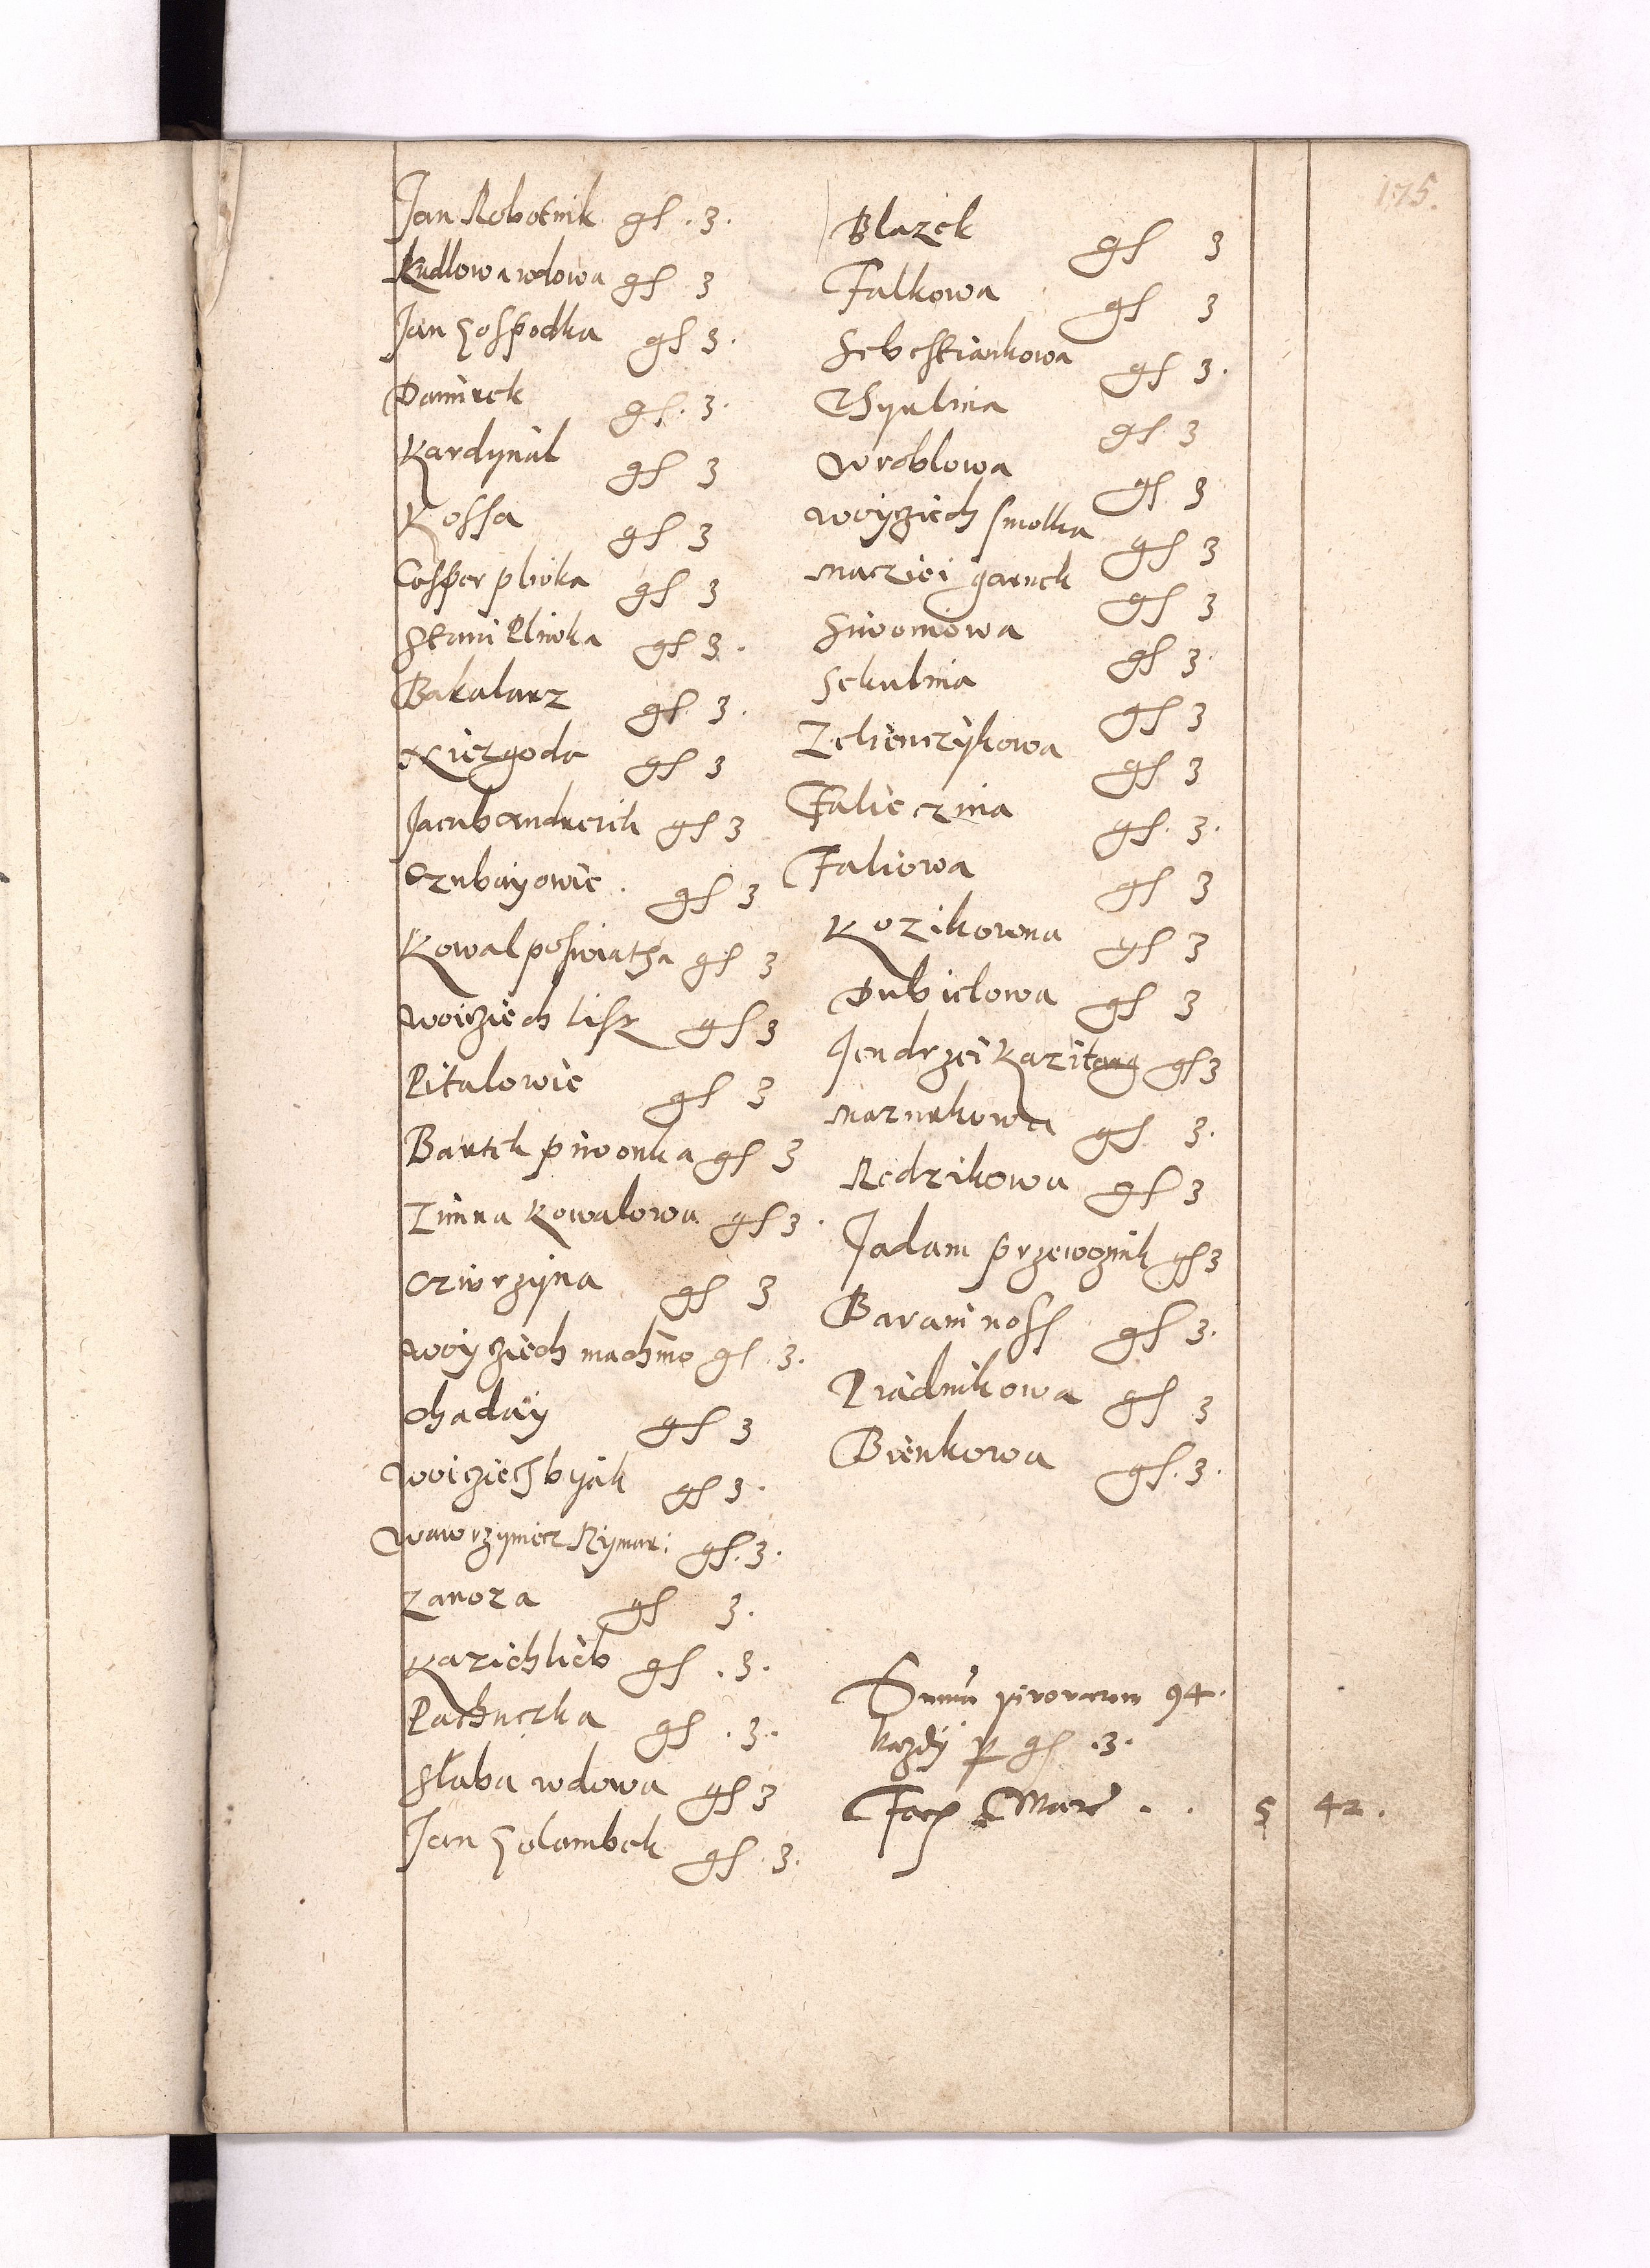 175.
Jan Robotnik gſ . 3.
Kudlowa wdowa gſ 3
Jan Hospodka gſ 3.
Damirek gſ. 3.
Kardynal gſ 3
Kossa gſ 3
Casper plioka gſ 3
Stani Pliwka gſ 3.
Bakalarz gſ. 3.
Niezgoda gſ 3
Jacub andrerik gſ 3
Czubayowic . gſ 3
Kowal poswiatza gſ 3
Woicziech lisz gſ 3
Pitalowic gſ 3
Bartek piwonka gſ 3
Zimna Kowalowa gſ 3.
Cziwrzyna gſ 3
Woyziech machno gſ . 3.
Chaday gſ 3
Woiziech byik gſ 3.
Wawrzyniecz Rymar: gſ. 3.
Zaroza gſ 3.
Kazichlieb gſ . 3.
Pachuczka gſ . 3.
Slaba wdowa gſ 3
Jan Holambek gſ . 3.
Blazek gſ 3
Falkowa gſ 3
Sebestiankowa gſ 3.
gſ. 3
Wroblowa gſ. 3
Woyziech smolka gſ 3
Macziei garnek gſ 3
Siwoniowa gſ 3.
Sekulina gſ 3
Zelienczykowa gſ 3
Falieczina gſ. 3.
Faliowa gſ 3
Kozikowna gſ 3
Dubielowa gſ 3
Jendrzei Kazitarg gſ 3
Mazurkowa gſ 3.
Redzikowa gſ 3
Jadam przewoznik gſ 3
Barani noss gſ 3.
Pradnikowa gſ 3
Bienkowa gſ. 3.
Summa 94.
kazdy p gſ .3.
Facit Marc . . 5 42.